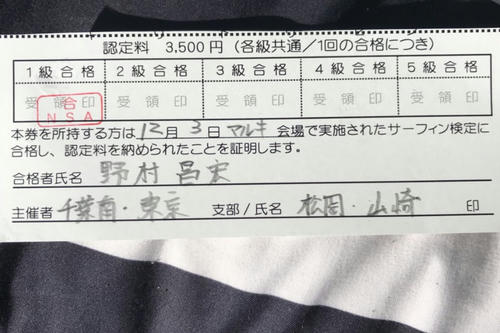 認定料 3,500円(各級共通/1回の合格につき)
1級合格 2級合格 3級合格 4級合格 5級合格
受領印 受領印 受領印 受領印 受領印
合
NSA
本券を所持する方は12月3日マルキ会場で実施されたサーフィン検定に
合格し、認定料を納められたことを証明します。
合格者氏名 野村昌宏
主催者 千葉南・東京 支部/氏名 松岡・山崎 印